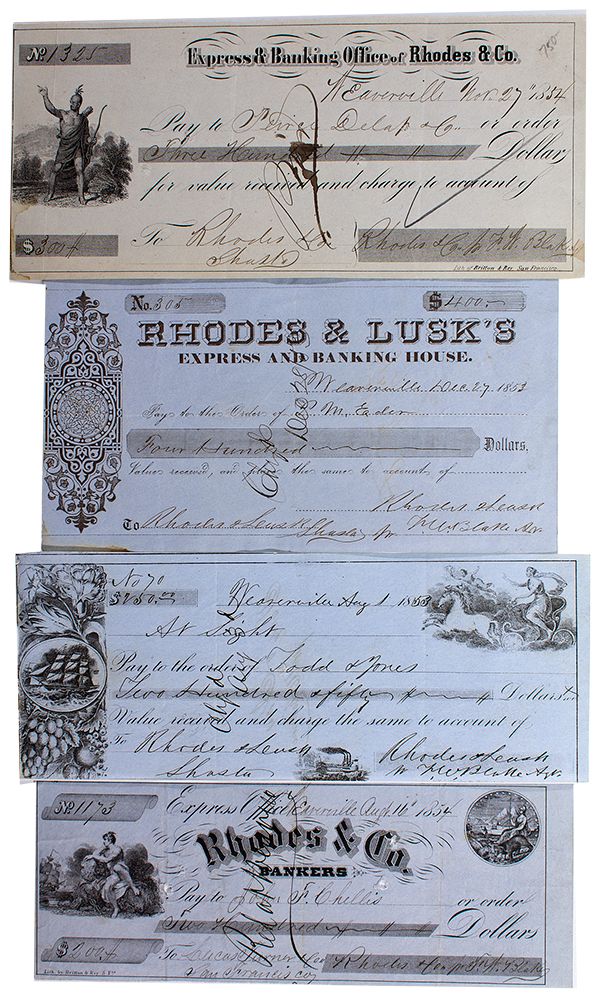 No. 1325
750-
Express & Banking Office of Rhodes & Co.
Weaverville Nov. 27th 1854
Pay to Pierce Delap & Co. or order
Three Hundred Dollars
for value received and charge to account of
$300 To Rhodes & Co Rhodes & Co. pr F. W. Blake
Shasta
Lith. of Britton & Rey. San Francisco.
No. 305 $400.-
RHODES & LUSK'S
EXPRESS AND BANKING HOUSE.
Weaverville Dec. 27. 1853
Pay to the Order of M. Eader
Four Hundred Dollars,
Value received, and place the same to account of
Rhodes & Lusk
To Rhodes & Lusk Shasta pr F W Blake Agt.
No 70
$250.00 Weaverville Aug 1 1853
At Sight
Pay to the order of Todd & Jones
Two Hundred & fifty Dollars
Value received and charge the same to account of
To Rhodes & Lusk Rhodes & Lusk
Shasta pr F W Blake Agt.
No. 1173 Express Office Weaverville Augt. 16th 1854
Rhodes & Co.
BANKERS
Pay to John F. Chellis or order
Two Hundred Dollars
$200 To Lucas Turner & Co Rhodes & Co. pr F. W. Blake
San Francisco
Lith. by Britton & Rey S. F.